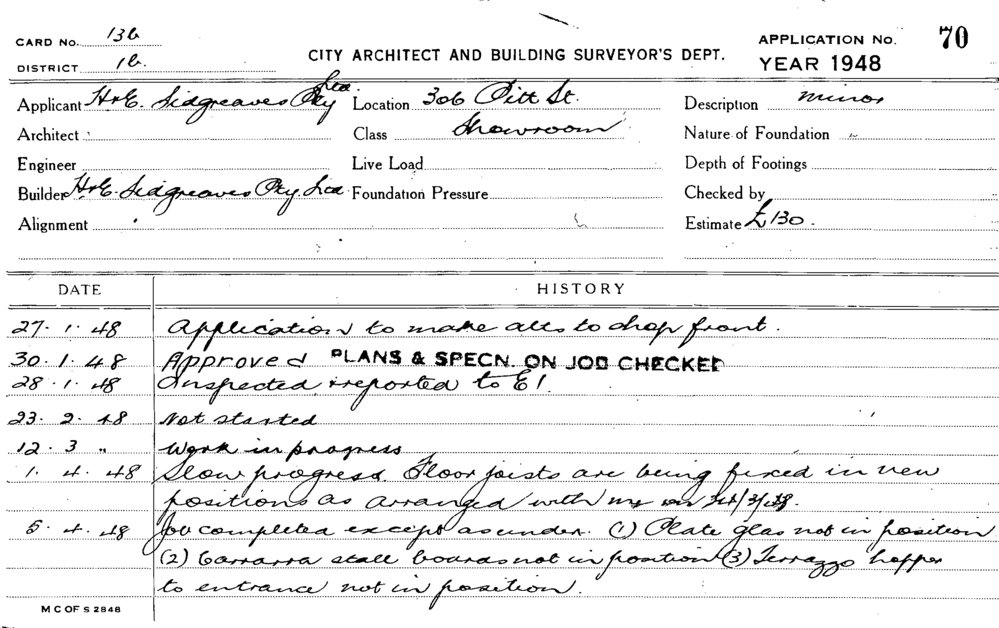 CARD No. 13b
CITY ARCHITECT AND BUILDING SURVEYOR'S DEPT.
APPLICATION No. 70
DISTRICT 1b.
YEAR 1948
Applicant H & E. Sidgreaves Pty Ltd. Location 306 Pitt St. Description minor
Architect Class Showroom Nature of Foundation
Engineer Live Load Depth of Footings
Builder H & E. Sidgreaves Pty Ltd. Foundation Pressure Checked by
Alignment Estimate £130.
DATE HISTORY
27.1.48 Application to make alts to shop front.
30.1.48 Approved PLANS & SPECN. ON JOB CHECKED
28.1.48 Inspected & reported to E1.
23.2.48 Not started
12.3 " Work in progress
1.4.48 Slow progress. Floor joists are being fixed in new
positions as arranged with me on /3/48.
5.4.48 Job completed except as under. (1) Plate glas not in position
(2) Carrarra stall boards not in position (3) Terrazzo hopper
to entrance not in position.
M C OF S 2848